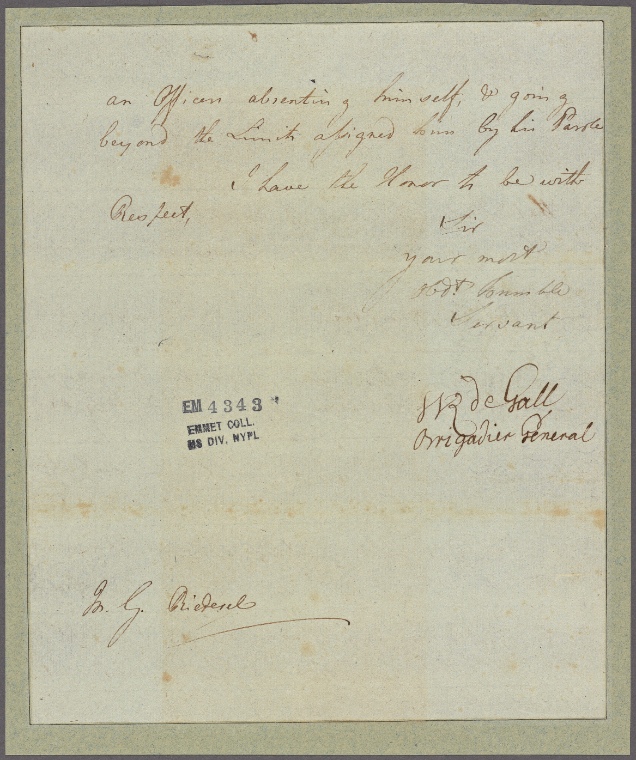 an Officer absenting himself, & going
beyond the Limits assigned him by his Parole
I have the Honor to be with
Respect,
Sir
your most
Obdt humble
Servant
WR de Gall
Brigadier General
EM 4343
EMMET COLL.
MS DIV. NYPL
M. G. Riedesel